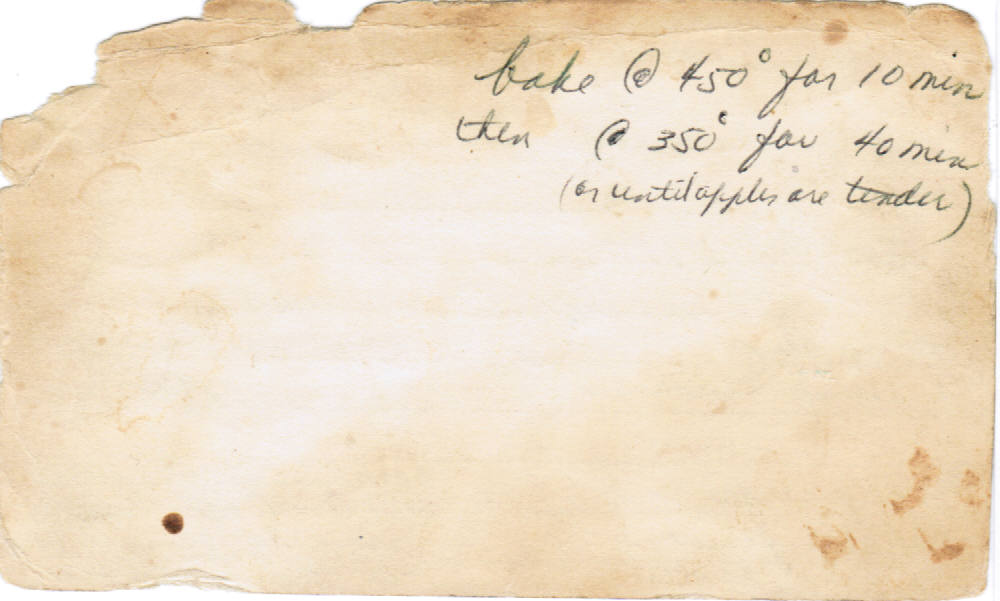 bake @ 450° for 10 min
then @ 350° for 40 min
(or until apples are tender)